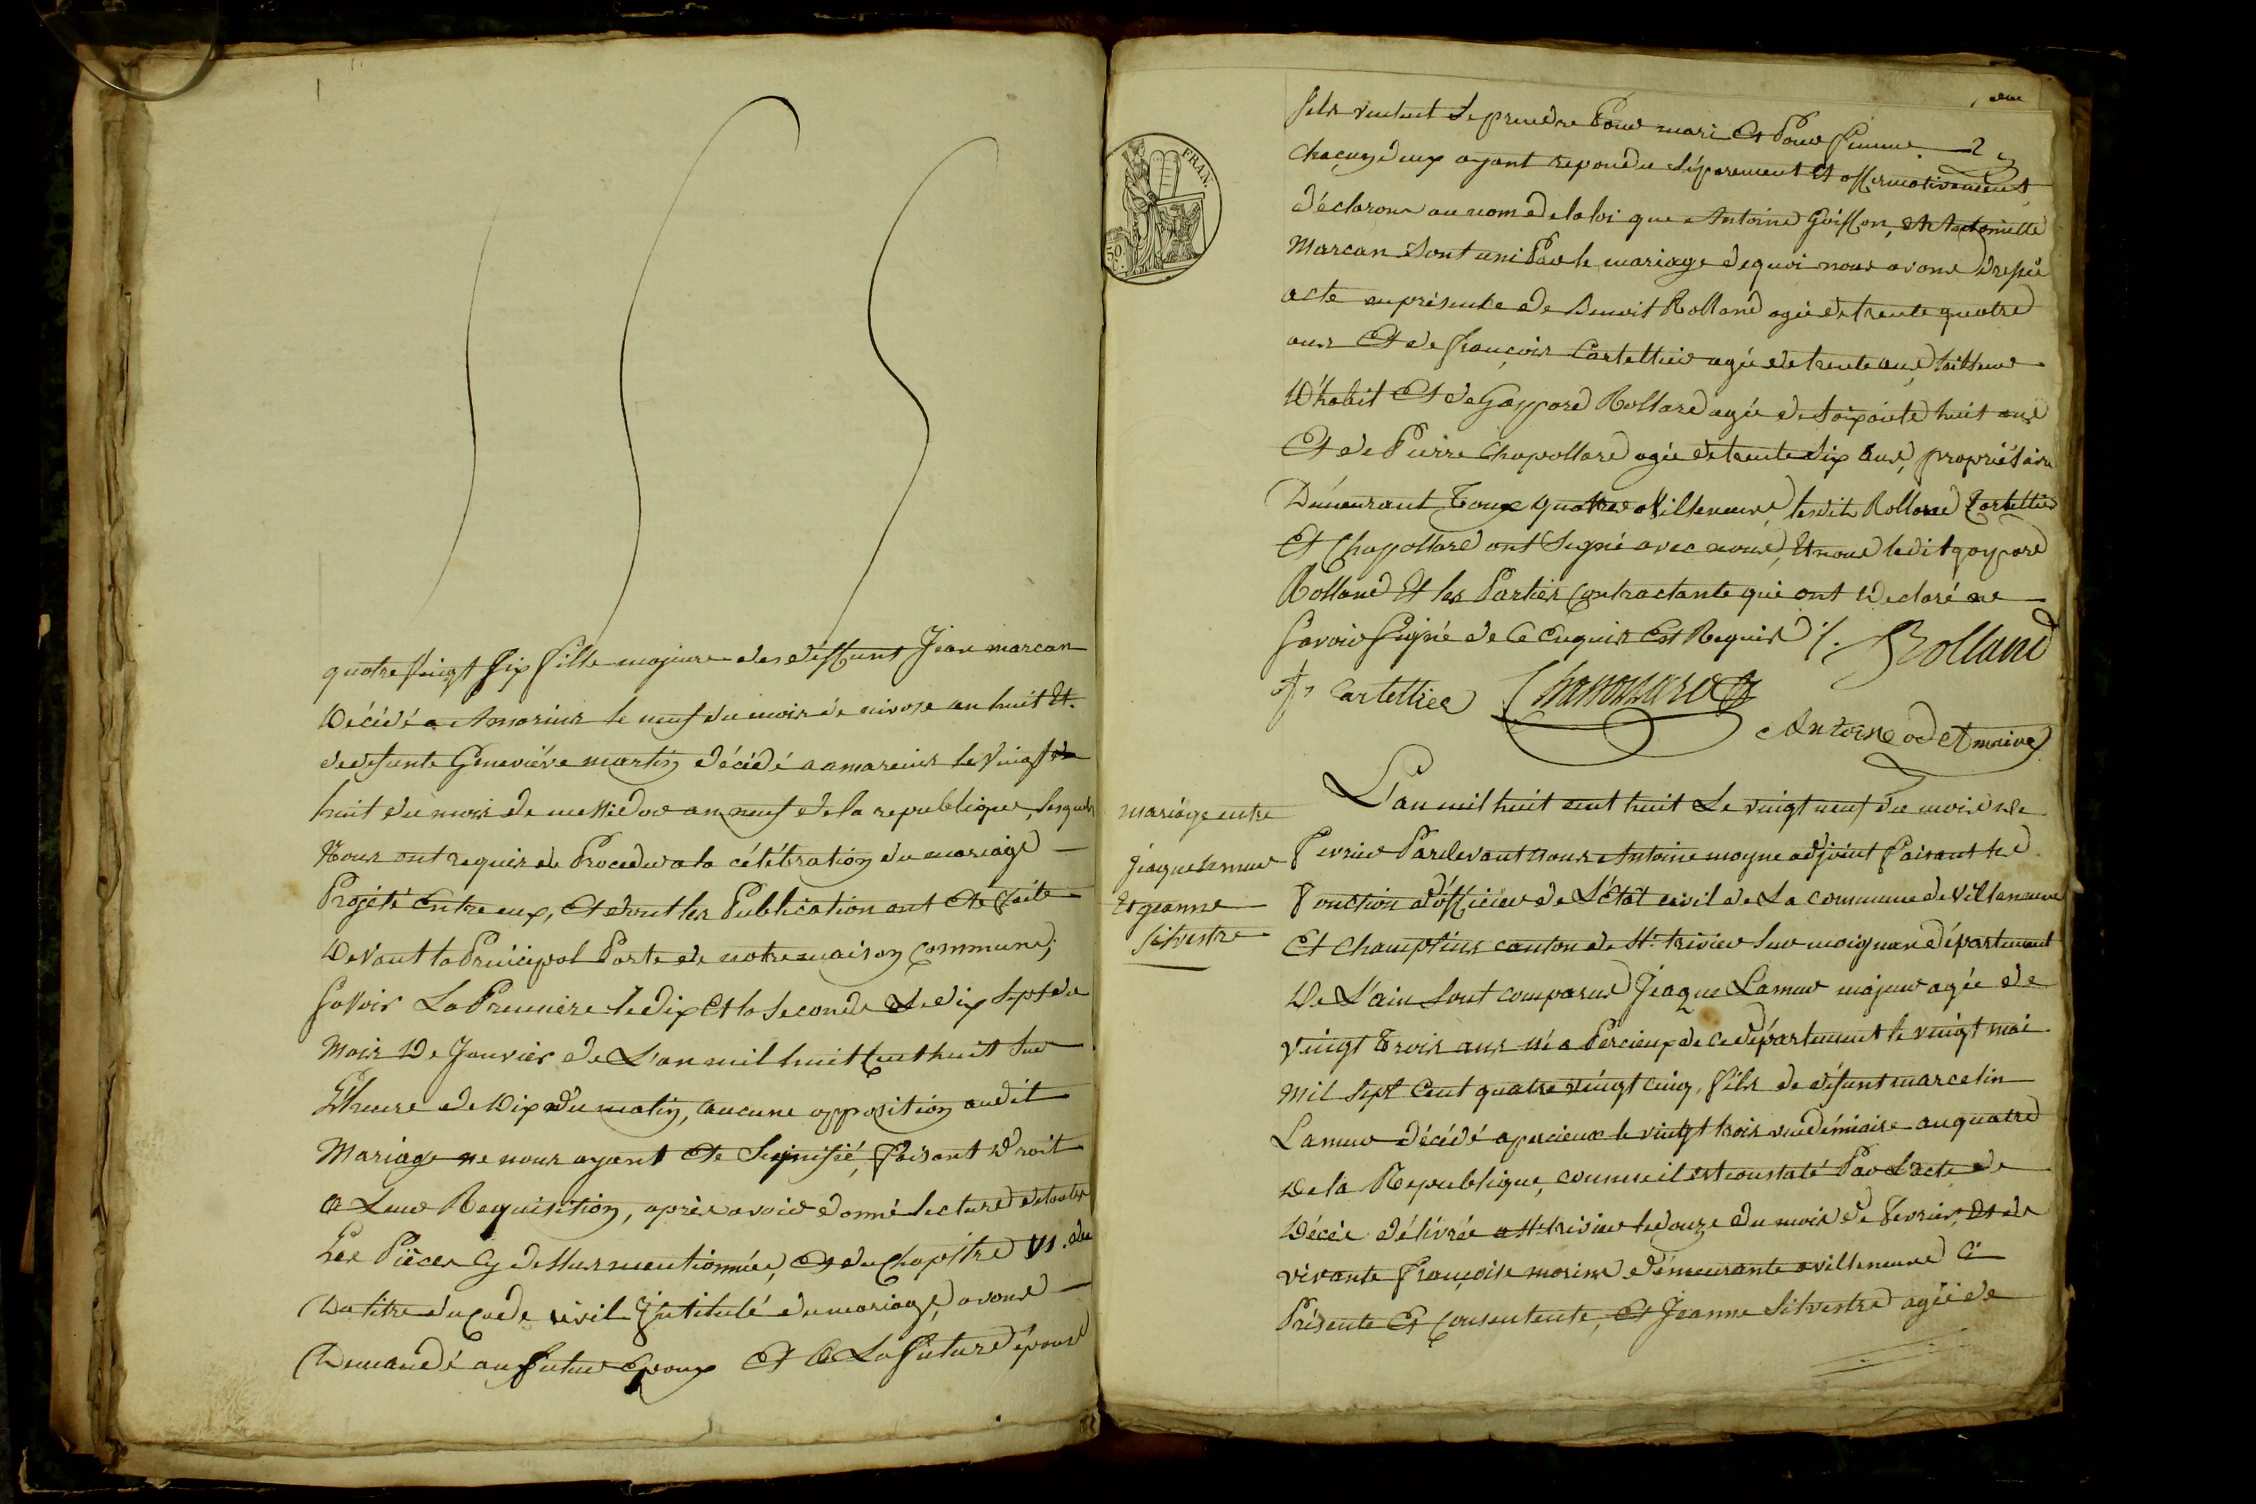 quatre vingt six fille majeure des deffunt Jean marcan
Décédé a Amareins le neuf du mois de nivose an huit Et
dedefunte Geneviéve martin décédé a amareins le vingt
huit du mois de messidor an neuf de la republique, lesquels
Nous ont requis de Proceder a la célébration du mariage
Projété entre eux, et dont les Publication ont été faite
Devant la Principal Porte de notre maison commune;
Savoir La Premiére le dix et la seconde Le dix sept du
Mois De Janvier de L'an mil huit cent huit sur
L'heure de Dix du matin, aucune opposition audit
Mariage ne nous ayant été signifié, faisant droit
a Leur Requisition, aprés avoir donné lecture de toutes
Les Piéces cy dessus mentionnées, et du chapitre VI. du
Du titre du code civil Intitulé du mariage, avons
Demandé au futur Epoux et a La future épouse
FRAN.
50
c.
2
fils veulent se prendre Pour mari et Pour femme.
Chacun d'eux ayant repondu séparement et affirmativement
déclarons au nom de la loi que Antoine Goiffon, et Antoinette
Marcan sont uni Par le mariage de quoi nous avons dressé
acte en présence de Benoit Rolland agée de trente quatre
ans et de françois Cartellier agée de trente ans, tailleur
D'habit et de Gaspard Rolland agée de soixante huit ans
Et de Pierre Chapolard agée de trente six ans, propriétaire
Demeurant Toux quatre a Villeneuve, lesdits Rolland Cartellier
Et Chapollard ont signé avec nous, et non ledit gaspard
Rolland et les Parties contractante qui ont déclaré ne
Savoir signé de Ce enquis et Requis ./. Rolland
f. Cartellier
Antoine odet maire
mariage entre
Jiaque Lamur
et jeanne
silvestre
L'an mil huit cent huit Le vingt neuf du mois de
fevrier Pardevant nous Antoine moyne adjoint faisant les
fonction d'officier de L'état civil de La commune de Villeneuve
Et champtins canton de St. trivier sur moignan département
De L'ain sont comparus Jiaque Lamur majeur agée de
vingt Trois ans né a Percieux de ce département le vingt mai
mil sept cent quatre vingt cinq, fils de défunt marcelin
Lamur décédé a percieux le vingt trois vendémiaire an quatre
De la Republique, comme il est constaté Par L'acte de
Décée délivrée a St. trivier le douze du mois de fevrier, et de
vivante françoise morine demeurante a villeneuve Ci
Présente et consentente, et Jeanne Silvestre agée de